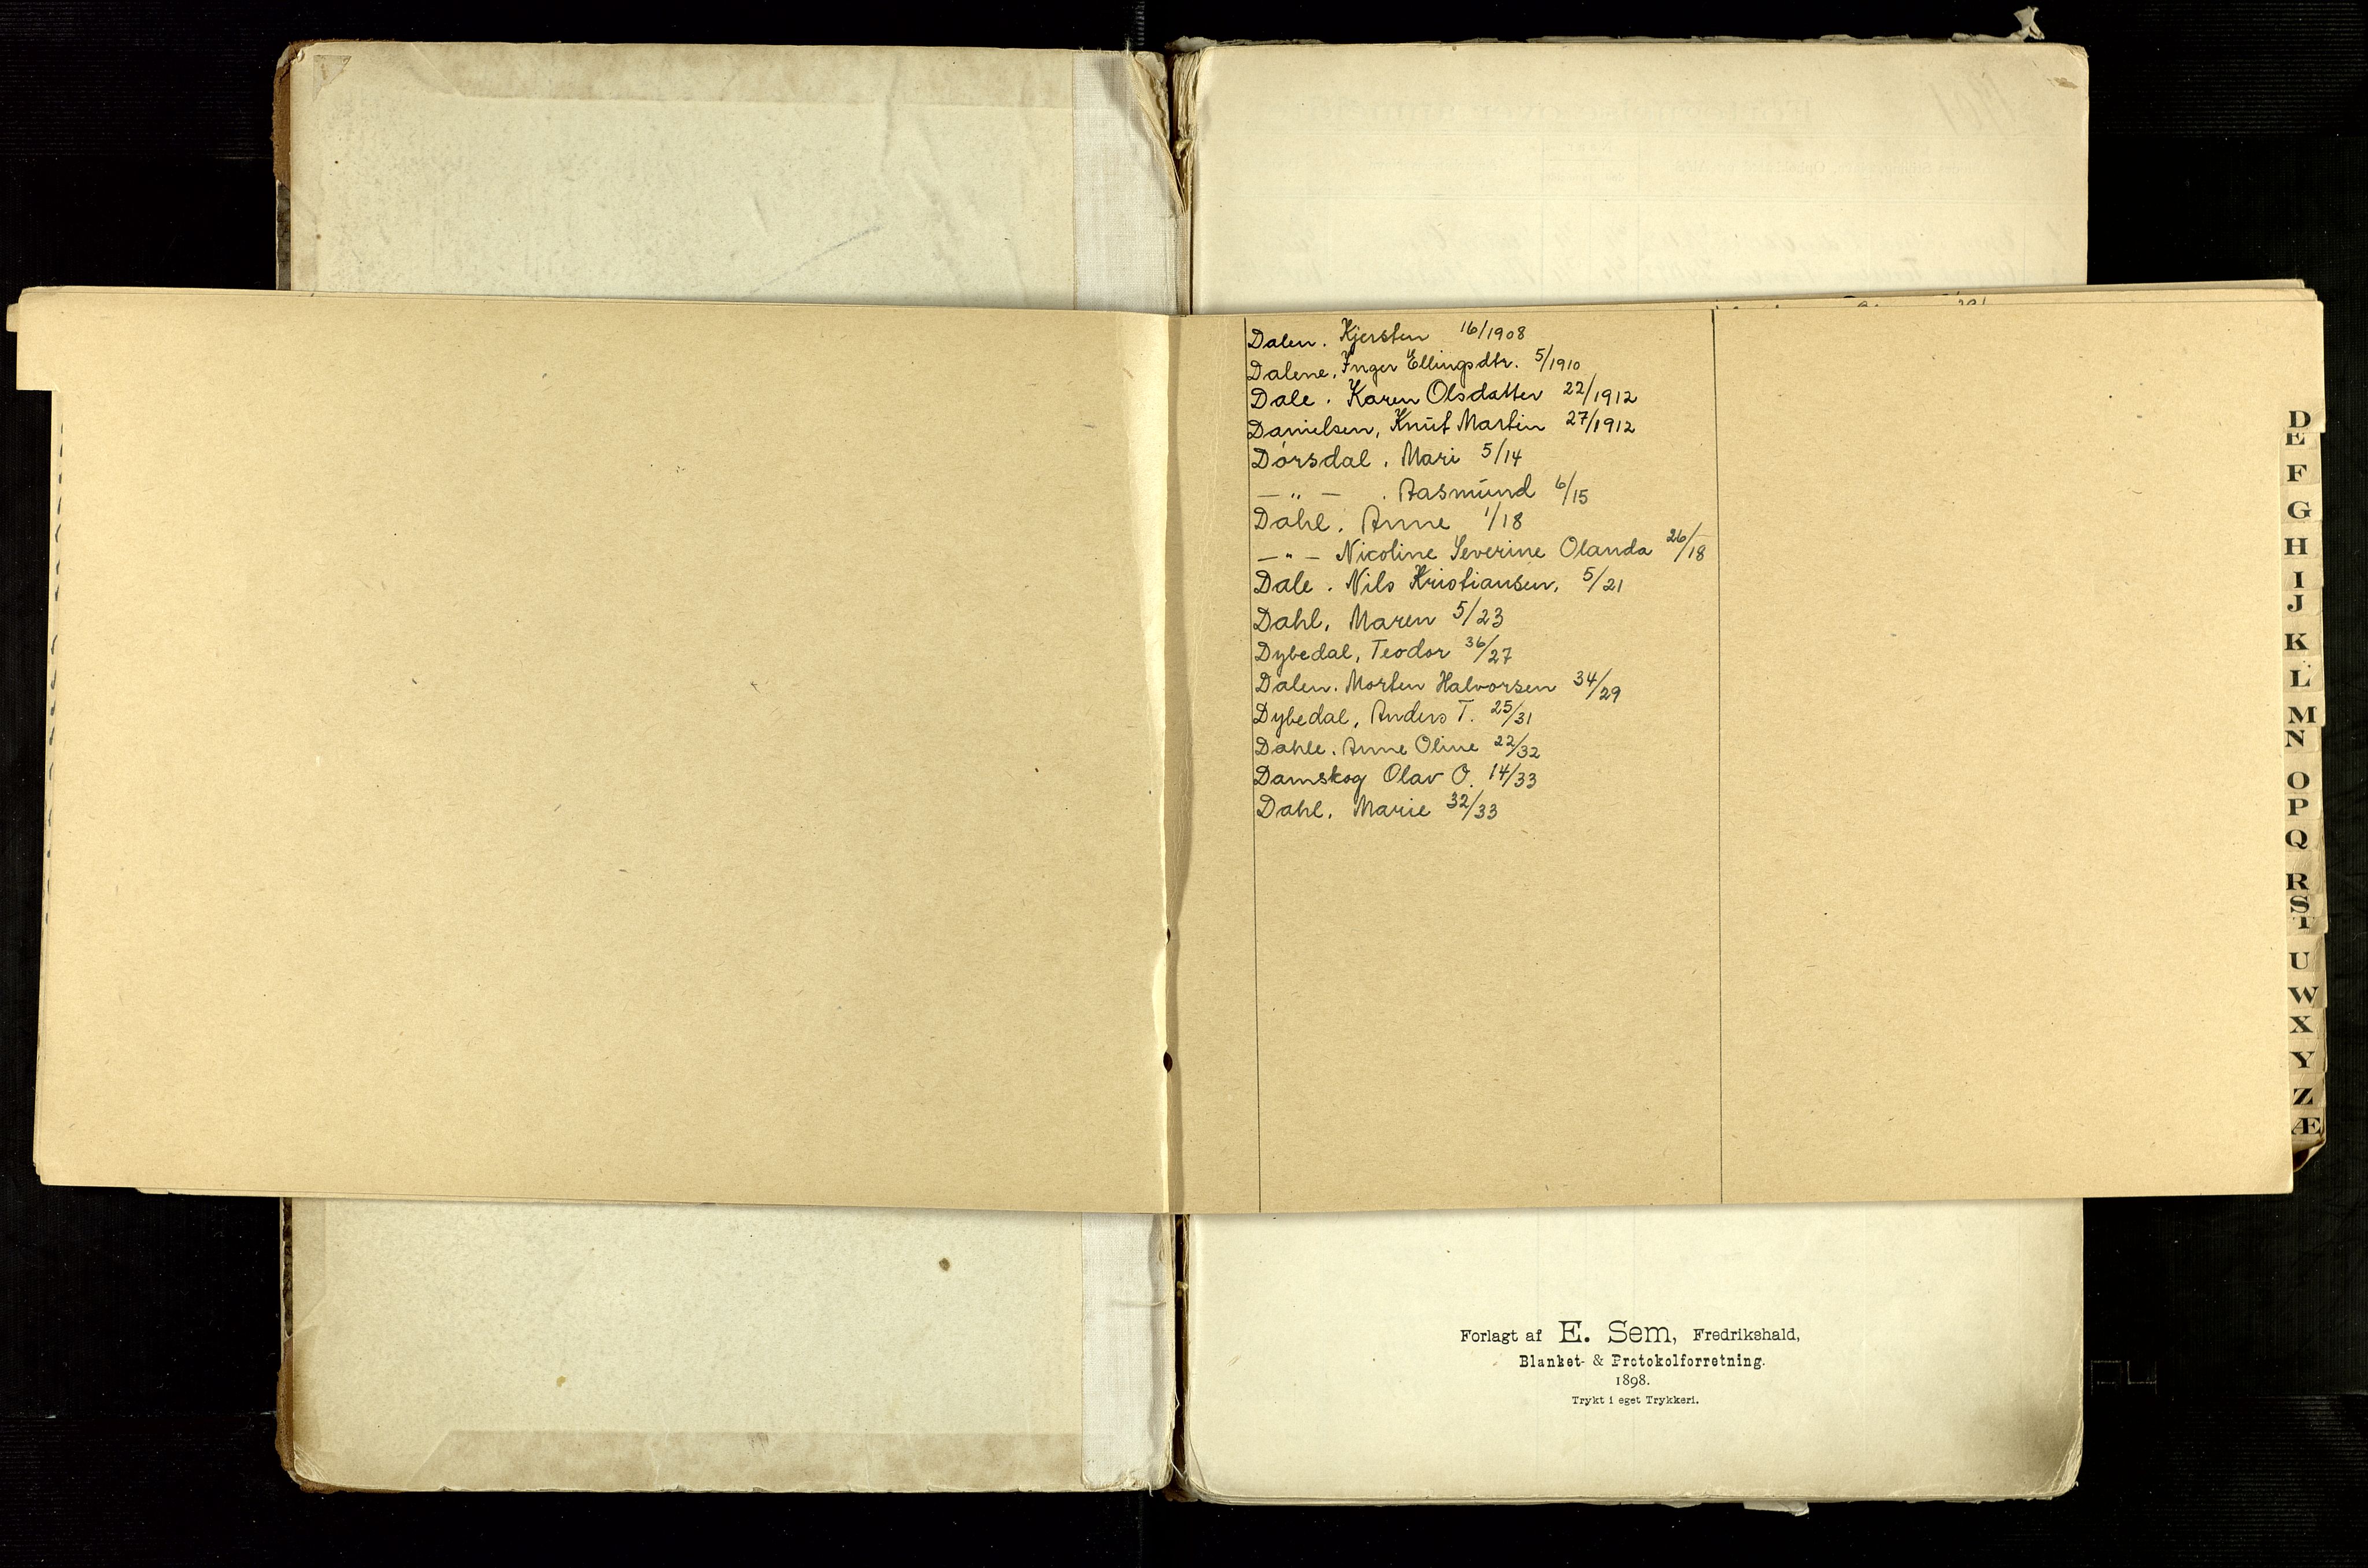 Dalen. Kjersten 16/1908
Dalene, Inger Ellingsdtr. 5/1910
Dale. Karen Olsdatter 22/1912
Danielsen, Knut Martin 27/1912
Dørsdal, Mari 5/14
— „ — . Aasmund 6/15
Dahl. Anne 1/18
— „ — Nicoline Severine Olanda 26/18
Dale. Nils Kristiansen, 5/21
Dahl, Maren 5/23
Dybedal, Teodor 36/27
Dalen. Morten Halvorsen 34/29
Dybedal, Anders T. 25/31
Dahle. Anne Oline 22/32
Damskog Olav O. 14/33
Dahl, Marie 32/33
D
E
F
G
H
I
J
K
L
M
N
O
P
Q
R
S
T
U
W
X
Y
Z
Æ
Forlagt af E. Sem, Fredrikshald,
Blanket- & Protokolforretning.
1898.
Trykt i eget Trykkeri.